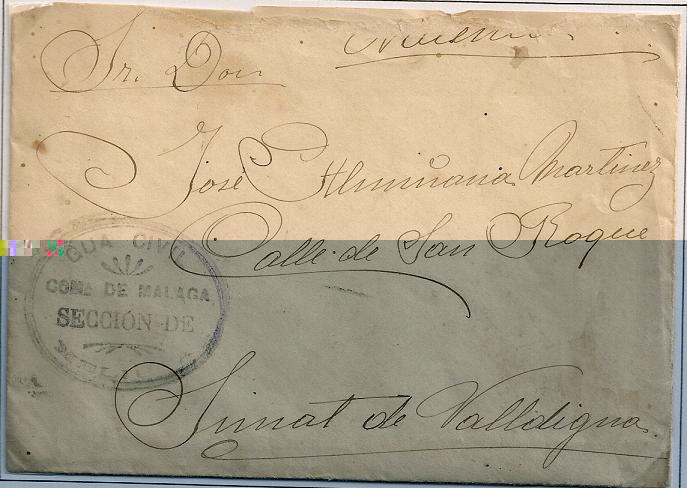 Sr. Don
José Almiñana Martinez
Calle de San Roque
GUA CIVIL
COMA DE MALAGA
SECCIÓN DE
Simat de Valldigna